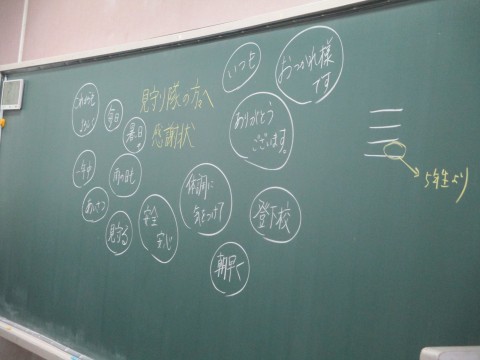 見守り隊の方へ
感謝状
いつも
おつかれ様
です
ありがとう
ございます。
毎日
暑い日
一年中
雨の日も
あいさつ
見守る
安全
安心
体調に
気をつけて
登下校
朝早く
5年生より